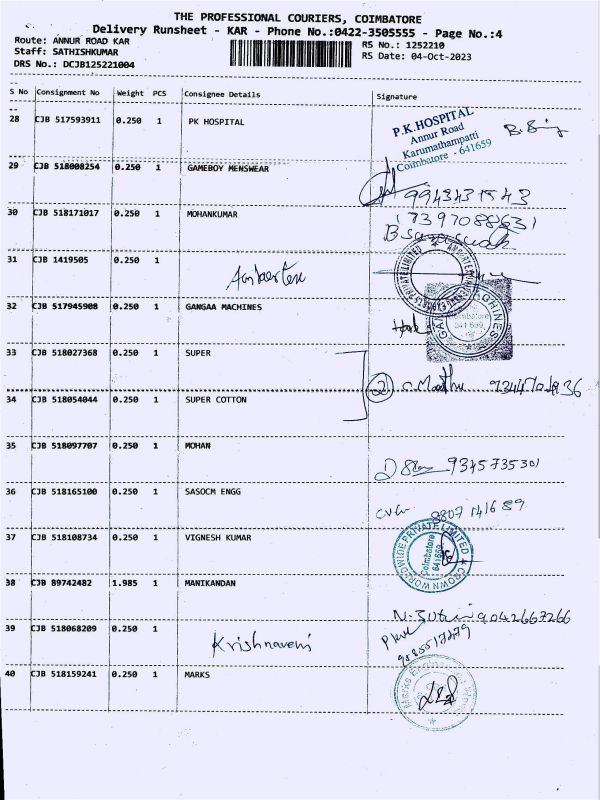 THE PROFESSIONAL COURIERS, COIMBATORE
Delivery Runsheet - KAR - Phone No.:0422-3505555 - Page No.:4
Route: ANNUR ROAD KAR RS No.: 1252210
Staff: SATHISHKUMAR RS Date: 04-Oct-2023
DRS No.: DCJB125221004
S No Consignment No Weight PCS Consignee Details Signature
28 CJB 517593911 0.250 1 PK HOSPITAL
P.K.HOSPITAL
Annur Road
Karumathampatti
Coimbatore - 641659
29 CJB 518008254 0.250 1 GAMEBOY MENSWEAR
9943431543
30 CJB 518171017 0.250 1 MOHANKUMAR
7397088631
31 CJB 1419505 0.250 1
PRIVATE LIMITED
32 CJB 517945908 0.250 1 GANGAA MACHINES
Coimbatore
641 659
33 CJB 518027368 0.250 1 SUPER
2
34 CJB 518054044 0.250 1 SUPER COTTON
35 CJB 518097707 0.250 1 MOHAN
9345735301
36 CJB 518165100 0.250 1 SASOCM ENGG
8807 141689
37 CJB 518108734 0.250 1 VIGNESH KUMAR
CROWN WORLDWIDE PRIVATE LIMITED
Coimbatore
641659
38 CJB 89742482 1.985 1 MANIKANDAN
9042667266
39 CJB 518068209 0.250 1 Krishnaveni
40 CJB 518159241 0.250 1 MARKS